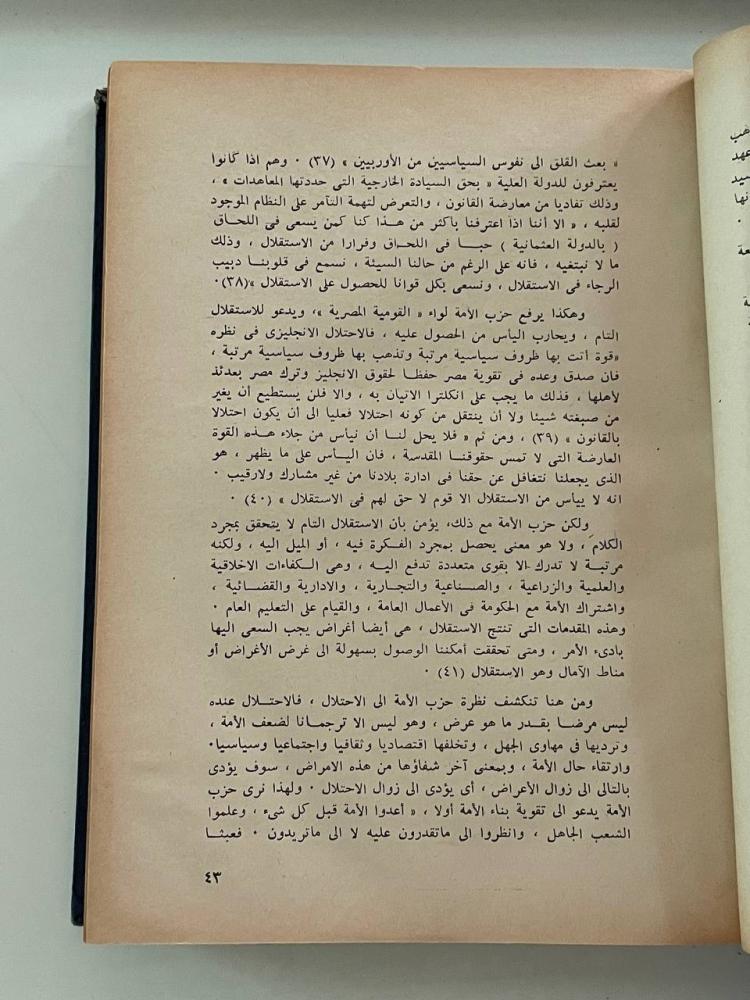 « بعث القلق الى نفوس السياسيين من الأوربيين » (٣٧) ٠ وهم اذا كانوا
يعترفون للدولة العلية « بحق السيادة الخارجية التى حددتها المعاهدات » ،
وذلك تفاديا من معارضة القانون ، والتعرض لتهمة التآمر على النظام الموجود
لقلبه ، « الا أننا اذا اعترفنا بأكثر من هـذا كنا كمن يسعى فى اللحاق
( بالدولة العثمانية ) حبـا فى اللحـاق وفرارا من الاستقلال ، وذلك
ما لا نبتغيه ، فانه على الرغم من حالنا السيئة ، نسمع فى قلوبنـا دبيب
الرجاء فى الاستقلال ، ونسعى بكل قوانا للحصول على الاستقلال »(٣٨)٠
وهكذا يرفع حزب الأمة لواء « القومية المصرية »، ويدعو للاستقلال
التام ، ويحارب اليأس من الحصول عليه ، فالاحتلال الانجليزى فى نظره
«قوة أتت بها ظروف سياسية مرتبة وتذهب بها ظروف سياسية مرتبة ،
فان صدق وعده فى تقوية مصر حفظـا لحقوق الانجليز وترك مصر بعدئذ
لأهلها ، فذلك ما يجب على انكلترا الاتيان به ، والا فلن يستطيع أن يغير
من صبغته شيئا ولا أن ينتقل من كونه احتلالا فعليا الى أن يكون احتلالا
بالقانون » (٣٩) ، ومن ثم « فلا يحل لنـا أن نيأس من جلاء هـذه القوة
العارضة التى لا تمس حقوقنـا المقدسة ، فان اليـأس على ما يظهر ، هو
الذى يجعلنا نتغافل عن حقنا فى ادارة بلادنا من غير مشارك ولارقيب ٠
انه لا ييأس من الاستقلال الا قوم لا حق لهم فى الاستقلال » (٤٠) ٠
ولكن حزب الأمة مع ذلك، يؤمن بأن الاستقلال التام لا يتحقق بمجرد
الكلام ، ولا هو معنى يحصل بمجرد الفـكرة فيه ، أو الميل اليه ، ولكنه
مرتبـة لا تدرك الا بقوى متعددة تدفع اليـه ، وهى الـكفاءات الاخلاقية
والعلمية والزراعية ، والصـناعية والتجـارية ، والادارية والقضـائية ،
واشتراك الأمة مع الحكومة فى الأعمال العامة ، والقيام على التعليم العام ٠
وهذه المقدمات التى تنتج الاستقلال ، هى أيضا أغراض يجب السعى اليها
بادىء الأمر ، ومتى تحققت أمكننا الوصول بسهولة الى غرض الأغراض أو
مناط الآمال وهو الاستقلال (٤١) ٠
ومن هنا تنكشف نظرة حزب الأمة الى الاحتلال ، فالاحتـلال عنده
ليس مرضـا بقدر ما هو عرض ، وهو ليس الا ترجمـانا لضعف الأمة ،
وترديها فى مهاوى الجهل ، وتخلفها اقتصاديا وثقافيا واجتماعيا وسياسيا٠
وارتقاء حال الأمة ، وبمعنى آخر شفاؤها من هذه الامراض ، سوف يؤدى
بالتالى الى زوال الأعراض ، أى يؤدى الى زوال الاحتلال ٠ ولهذا نرى حزب
الأمة يدعو الى تقوية بناء الأمة أولا ، « أعدوا الأمة قبل كل شىء ، وعلموا
الشعب الجاهل ، وانظروا الى ماتقدرون عليه لا الى ماتريدون ٠ فعبثـا
٤٣